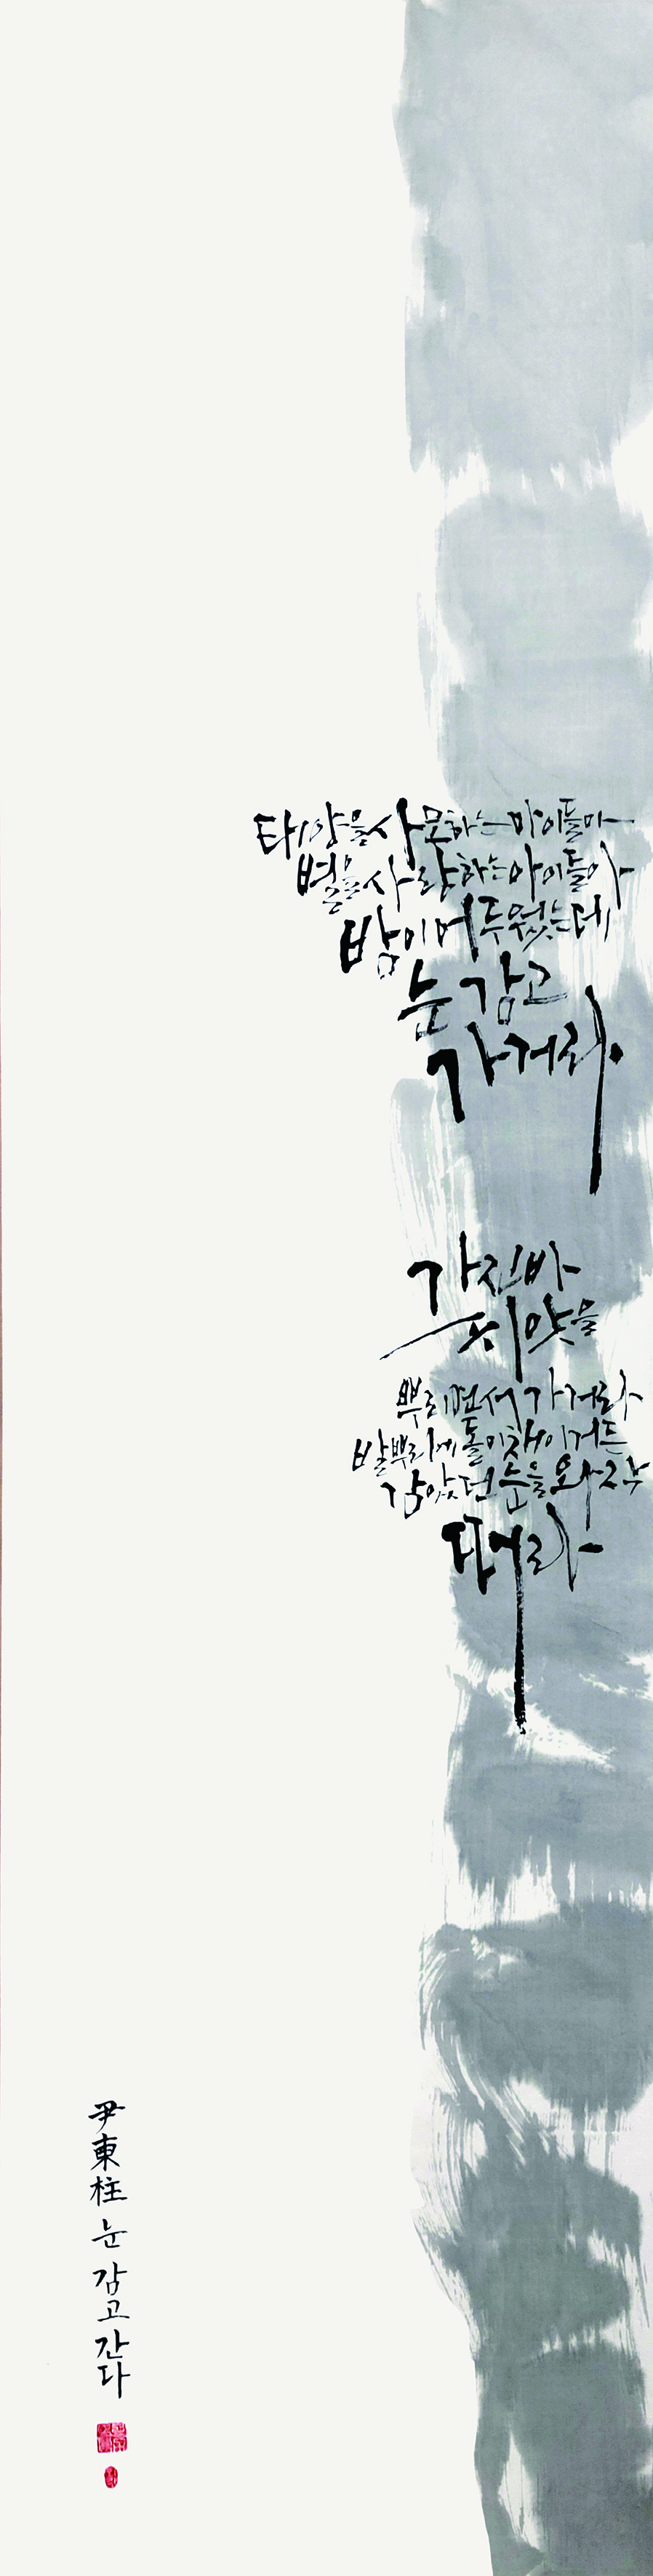 태양을사모하는아이들아
별을사랑하는아이들아
밤이어두웠는데
눈감고
가거라
가진바
씨앗을
뿌리면서가거라
발뿌리에돌이채이거든
감았던눈을와짝
떠라
尹東柱 눈 감고 간다